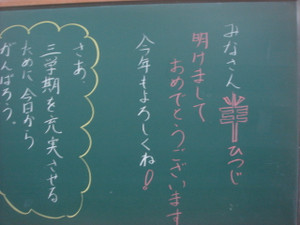 みなさん
ひつじ
明けまして
おめでとうございます
今年もよろしくね!
さあ、
三学期を充実させる
ために今日から
がんばろう。